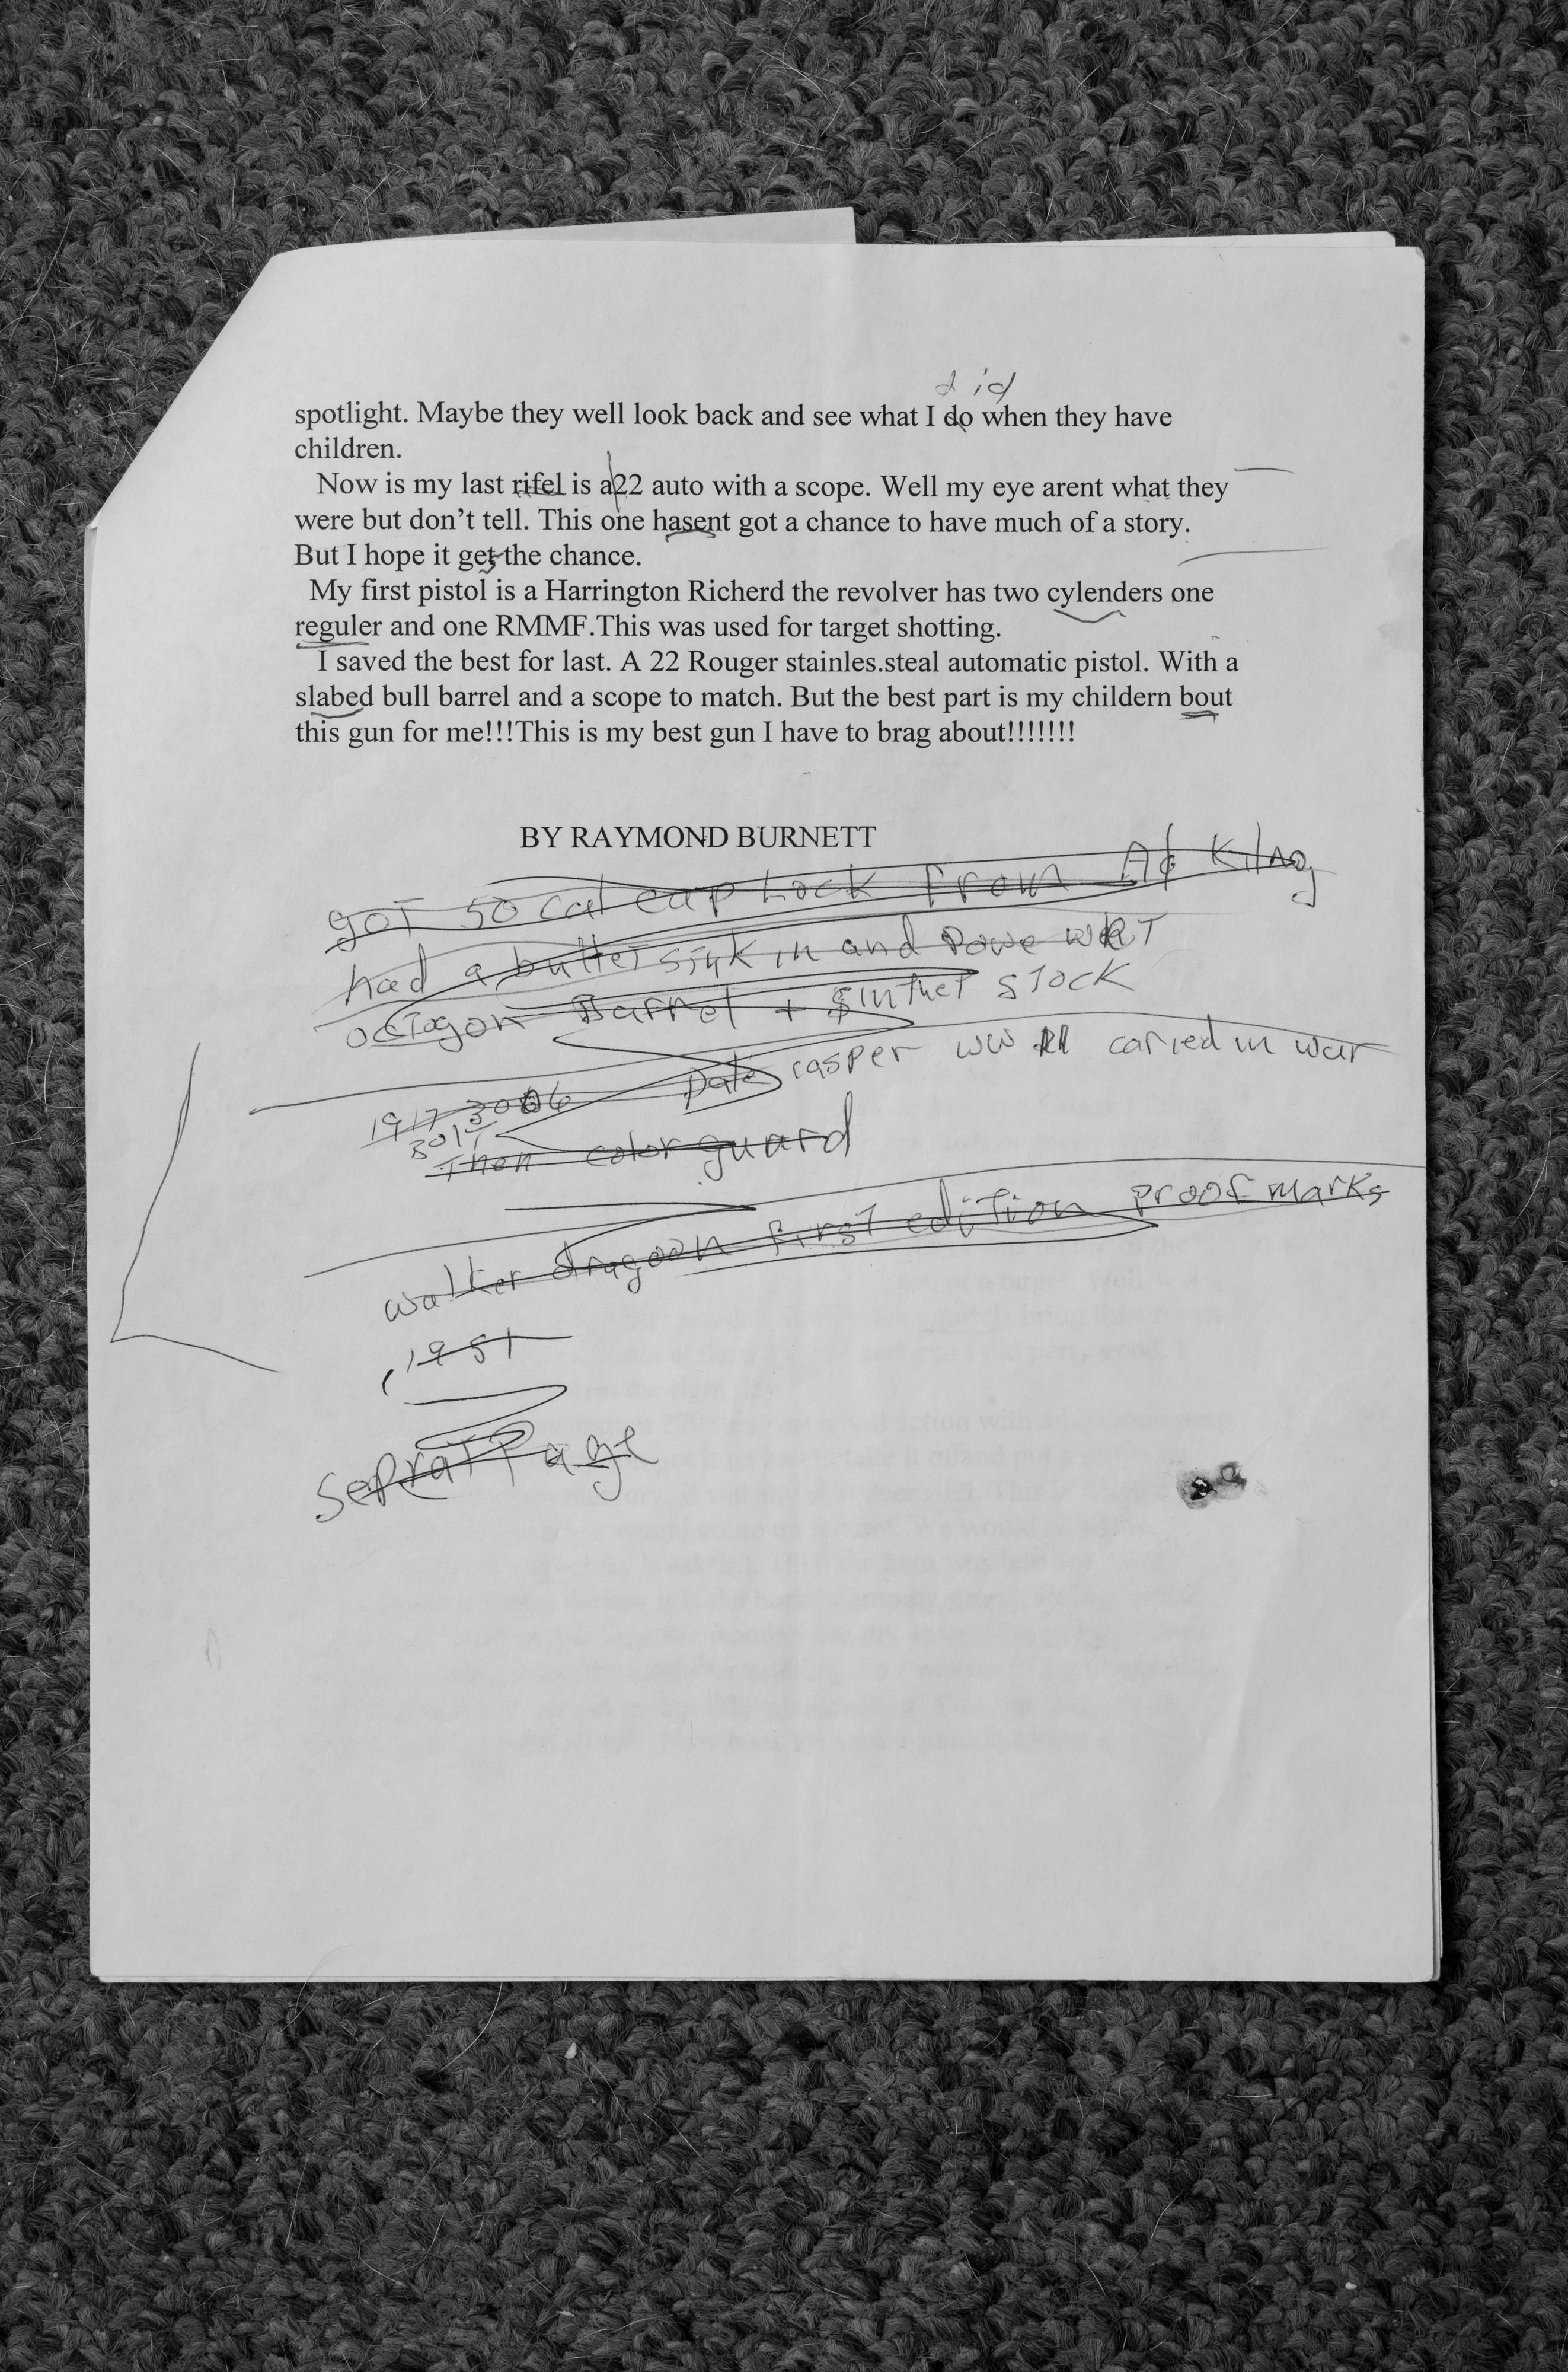 did
spotlight. Maybe they well look back and see what I do when they have
children.
Now is my last rifel is a22 auto with a scope. Well my eye arent what they
were but don’t tell. This one hasent got a chance to have much of a story.
But I hope it get the chance.
My first pistol is a Harrington Richerd the revolver has two cylenders one
reguler and one RMMF.This was used for target shotting.
I saved the best for last. A 22 Rouger stainles.steal automatic pistol. With a
slabed bull barrel and a scope to match. But the best part is my childern bout
this gun for me!!!This is my best gun I have to brag about!!!!!!!
BY RAYMOND BURNETT
got 50 cal cap Lock from
had a butter sink in and
octagon Barrel + stock
casper WW caried in war
1917 3006
Then color guard
walker dragoon first edition proof marks
1951
Seprat Page